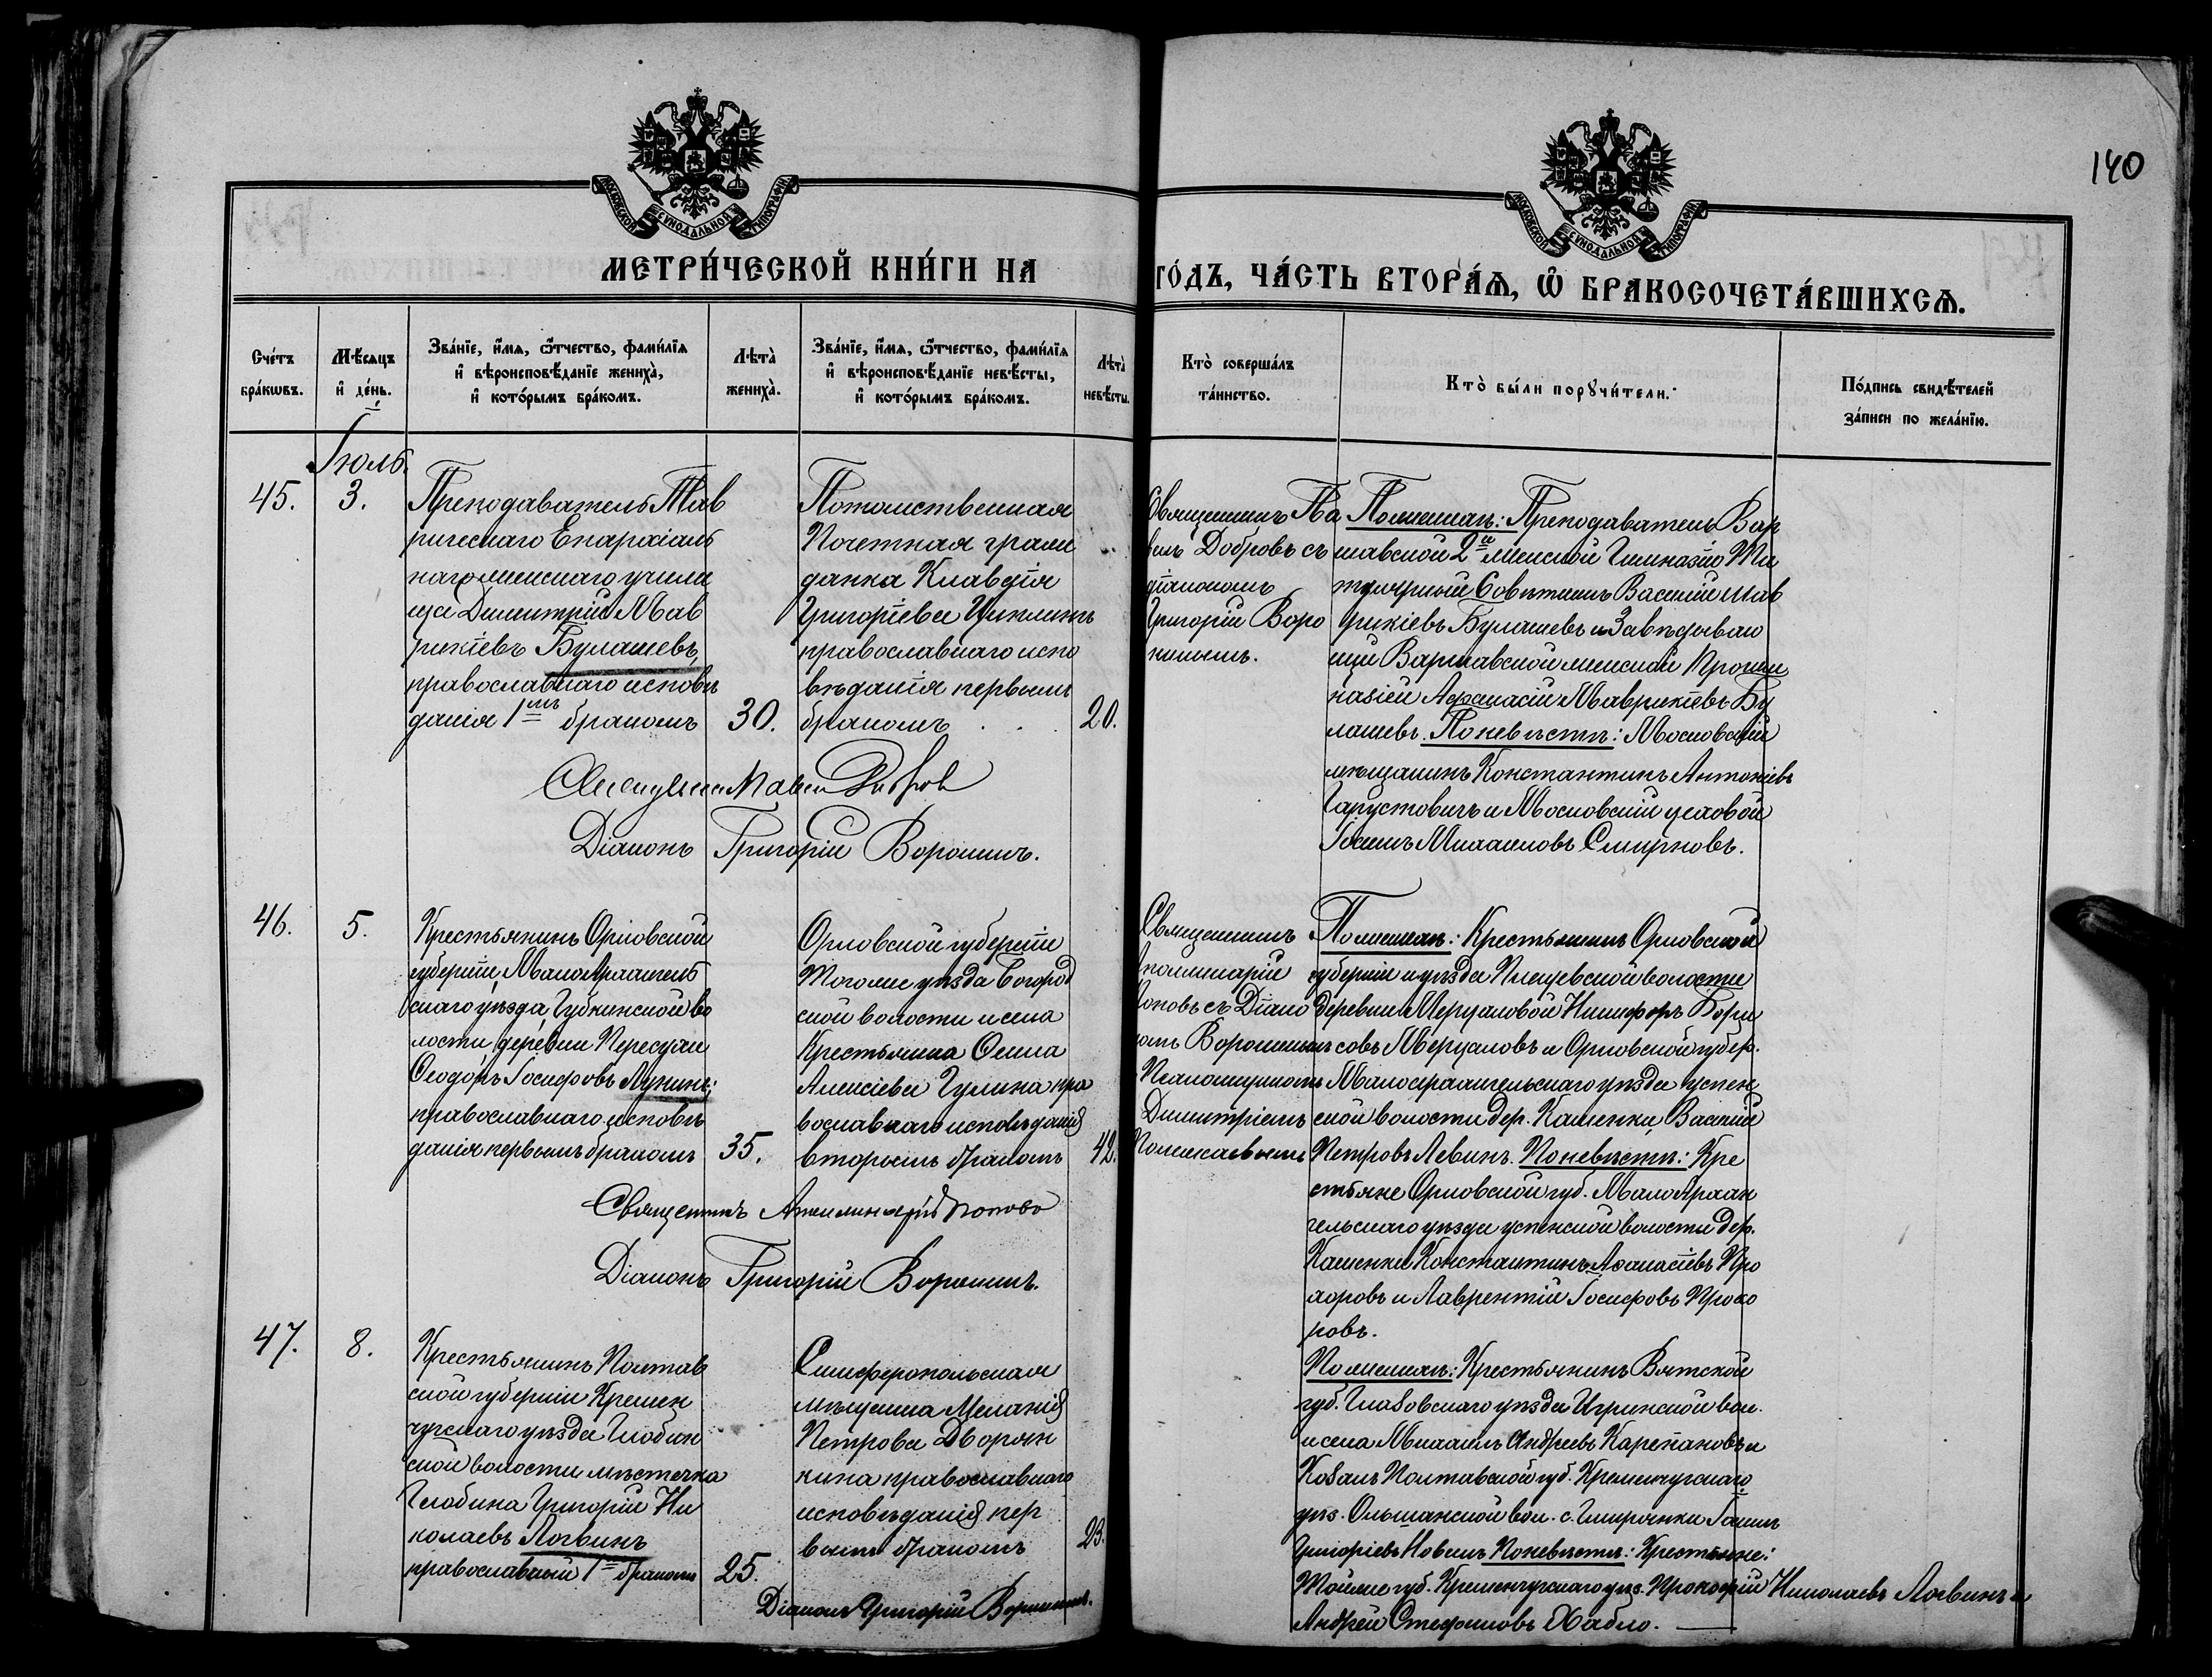 140
МОСКОВСКОЙ СУНОДАЛЬНОЙ ТИПОГРАФІИ
МОСКОВСКОЙ СУНОДАЛЬНОЙ ТИПОГРАФІИ
МЕТРИ́ЧЕСКОЙ КНИ́ГИ НА
ГО́ДЪ, ЧА́СТЬ ВТОРА́Ѧ, Ѡ҆ БРАКОСОЧЕТА́ВШИХСѦ.
Сче́тъ
бра́кѡвъ.
Мѣ́сѧцъ
и҆ де́нь.
Зва́нїе, и҆́мѧ, ѻ҆́тчество, фами́лїѧ
и҆ вѣроисповѣ́данїе жениха̀,
и҆ кото́рымъ бра́комъ.
Лѣта̀
жениха̀.
Зва́нїе, и҆́мѧ, ѻ҆́тчество, фами́лїѧ
и҆ вѣроисповѣ́данїе невѣ́сты,
и҆ кото́рымъ бра́комъ.
Лѣта̀
невѣ́сты.
Кто̀ соверша́лъ
та́инство.
Кто̀ бы́ли порꙋчи́тели.
По́дпись свидѣ́телей
за́писи по жела́нїю.
Іюль
45.
3.
Преподаватель Тав
рическаго Епархіаль
наго женскаго учили
ща Димитрій Мав
рикіевъ Булашевъ,
православнаго исповѣ
данія 1мъ бракомъ
30.
Потомственная
Почетная граж
данка Клавдія
Григоріева
православнаго испо
вѣданія первымъ
бракомъ
20.
Священникъ Па
велъ Добровъ съ
діакономъ
Григоріем Воро
нинымъ.
По женихѣ: Преподаватель Вар
шавской 2й женской Гимназіи Ти
тулярный Совѣтникъ Василій Мав
рикіевъ Булашевъ и Завѣдываю
щій Варшавской женской Прогим
назіей Афанасій Маврикіевъ Бу
лашевъ. По невѣстѣ: Московскій
мѣщанинъ Константинъ Антоніевъ
и Московскій цеховой
Михаиловъ Смирновъ.
Священникъ Павелъ Добровъ
Діаконъ Григорій Воронинъ.
46.
5.
Крестьянинъ Орловской
губерніи, МалоАрхангель
скаго уѣзда, Губкинской во
лости, деревни
Ѳеодоръ Іосифовъ Лунинъ;
православнаго исповѣ
данія первымъ бракомъ
35.
Орловской губерніи
Того же уѣзда Богород
ской волости и села
Крестьянка
Алексіева Гулина пра
вославнаго исповѣданія
вторымъ бракомъ
42.
Священникъ
Аполлинарій
Поповъ съ Діако
номъ Воронинымъ
Псаломщикомъ
Димитріемъ
По женихѣ: Крестьянинъ Орловской
губерніи и уѣзда Плещеевской волости
деревни Мерцаловой Никифоръ Бори
совъ Мерцаловъ и Орловской губер.
Малоархангельскаго уѣзда Успен
ской волости дер. Каменки, Василій
Петровъ Левинъ. По невѣстѣ: Кре
стьяне Орловской губ. МалоАрхан
гельскаго уѣзда Успенской волости дер.
Каменки Константинъ Аѳанасіевъ Про
хоровъ и Лаврентій Іосифовъ Прохо
ровъ.
Священникъ Аполлинарій Поповъ
Діаконъ Григорій Воронинъ.
47.
8.
Крестьянинъ Полтав
ской губерніи Кремен
чугскаго уѣзда Глобин
ской волости мѣстечка
Глобина Григорій Ни
колаевъ Логвинъ
православный 1м бракомъ
25.
Симферопольская
мѣщанка Меланія
Петрова Дворян
кина православнаго
исповѣданія пер
вымъ бракомъ
23.
По женихѣ: Крестьянинъ Вятской
губ. Глазовскаго уѣзда Игринской вол.
и села Михаилъ Андреевъ Карепановъ и
Козакъ Полтавской губ. Кременчугскаго
уѣз. Ольшанской вол. с.
Григоріевъ Новакъ По невѣстѣ: Крестьяне:
Той же губ. Кременчугскаго уѣз. Прокофій Николаевъ Логвинъ и
Андрей Стефановъ Хабло.
Діаконъ Григорій Воронинъ.